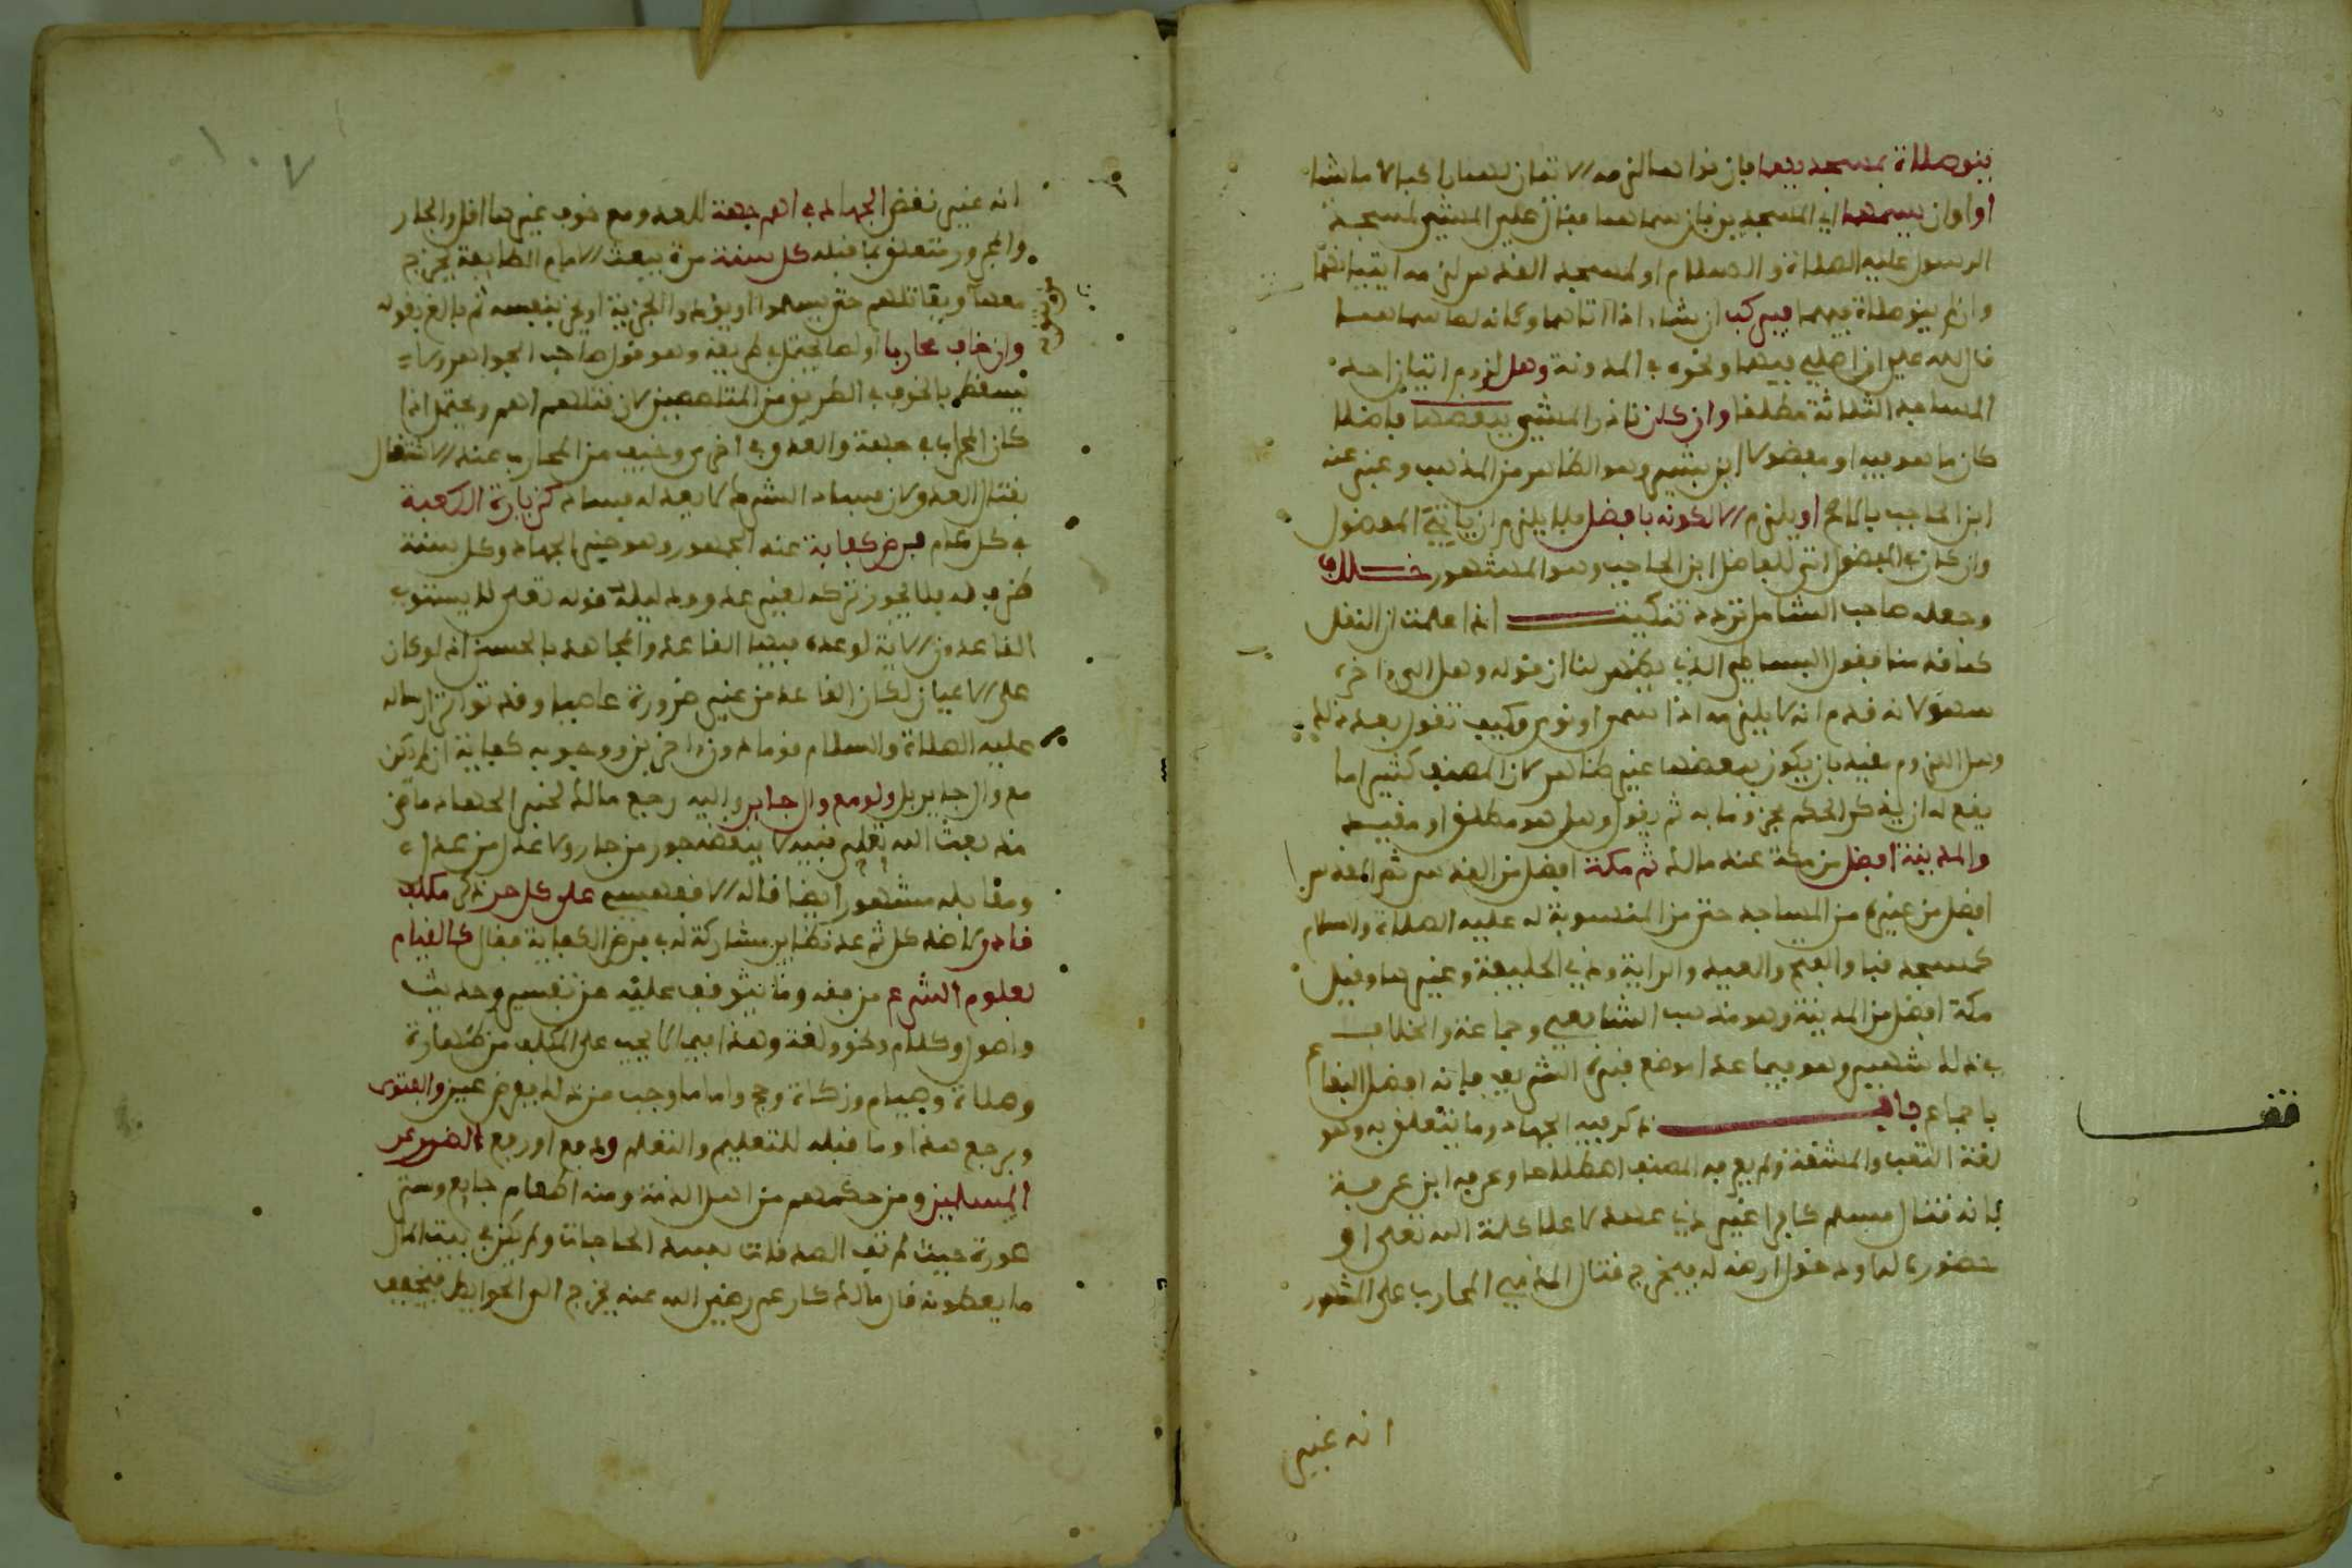 ينو صلاة بمسجديهما فإن نواهما لزمه الاتيان لهما راكبا لا ماشيا
او او ان يسمهما اي المسجدين فإن سماهما فقال علي المشي لمسجد
الرسول عليه الصلاة والسلام او لمسجد القدس لزمه اتيانهما
وان لم ينو صلاة فيهما فيركب ان شاء اذا اتاهما وكانه لما سماهما
قال لله علي ان اصلي فيهما ونحوه في المدونة وهل لزوم اتيان احد
المساجد الثلاثة مطلقا وان كان ناذر المشي ببعضها فاضلا
كان ما هو فيه او مفضولا ابن بشير وهو الظاهر من المذهب وعبر عنه
ابن الحاجب بالاصح او يلزم الا لكونه بافضل فلا يلزم ان ياتي المفضول
وان كان في المفضول اتى للفاضل ابن الحاجب وهو المشهور خلاف
وجعله صاحب الشامل تردد تنكيت اذا علمت ان النقل
كما قدمنا فقول البساطي الذي يظهر لنا ان قوله وهل الى اخره
سهو لانه قدم انه لا يلزمه اذا سمى او نوى وكيف تقول بعد ذلك
وهل اللزوم مقيد بان يكون ببعضها غير ظاهر لان المصنف كثيرا ما
يقع له ان يذكر الحكم مجزوما به ثم يقول وهل هو مطلق او مقيد
والمدينة افضل من مكة عند مالك ثم مكة افضل من القدس ثم القدس
افضل من غيره من المساجد حتى من المنسوبة له عليه الصلاة والسلام
كمسجد قبا والفتح والعيد والراية وذي الحليفة وغيرها وقيل
مكة افضل من المدينة وهو مذهب الشافعي وجماعة والخلاف
في ذلك شهير وهو فيما عدا موضع قبره الشريف فإنه افضل البقاع
باجماع باب ذكر فيه الجهاد وما يتعلق به وهو
لغة التعب والمشقة ولم يعرفه المصنف اصطلاحا وعرفه ابن عرفة
بانه قتال مسلم كافرا غير ذي عهد لاعلاء كلمة الله تعلى او
حضوره له او دخول ارضه له فيخرج قتال الذمي المحارب على المشهور
انه غير
قف
١٠٧
انه غير نقض الجهاد في اهم جهة للعدو ومع خوف غيرها اقل والجار
والمجرور متعلق بما قبله كل سنة مرة يبعث الامام الطايفة يخرج
معها ويقاتلهم حتى يسلموا او يؤدوا الجزية او يخرج بنفسه ثم بالغ بقوله
وان خاف محاربا او لصا يحتمل في طريقه وهو قول صاحب الجواهر ولا
يسقط بالخوف في الطريق من المتلصصين لان قتالهم اهم ويحتمل اذا
كان المحارب في جهة والعدو في اخرى وخيف من المحارب عند الاشتغال
بقتال العدو لان فساد الشرك لا يعدله فساد كزيارة الكعبة
في كل عام فرض كفاية عند الجمهور وهو خبر الجهاد وكل سنة
ظرف له فلا يجوز تركه لغير عذر ودليله قوله تعلى لا يستوي
القاعدون الآية لوعده فيها القاعد والمجاهد بالحسنى اذ لو كان
على الاعيان لكان القاعد من غير ضرورة عاصيا وقد تواتر ارساله
عليه الصلاة والسلام قوما دون اخرين ووجوبه كفاية ان لم يكن
مع وال جاير بل ولو مع وال جاير واليه رجع مالك لخبر الجهاد ماض
منذ بعث الله تعلى نبيه لا ينقضه جور من جار ولا عدل من عدل
ومقابله مشهور ايضا قاله الاقفهسي على كل حر ذكر مكلف
قادر لا ضد كل ثم عد نظاير مشاركة له في فرض الكفاية فقال كالقيام
بعلوم الشرع من فقه وما يتوقف عليه من تفسير وحديث
واصول وكلام ونحو ولغة وهذا فيما لا يجب على المكلف من طهارة
وصلاة وصيام وزكاة وحج واما ما وجب من ذلك ففرض عين والفتوى
ويرجع هذا وما قبله للتعليم والتعلم ودفع او رفع الضرر عن
المسلمين ومن حكمهم من اهل الذمة ومنه اطعام جايع وستر
عورة حيث لم تف الصدقات بسد الحاجات ولم يكن في بيت المال
ما يعطونه قال مالك كان عمر رضي الله عنه يخرج الى الحوايط فيخفف